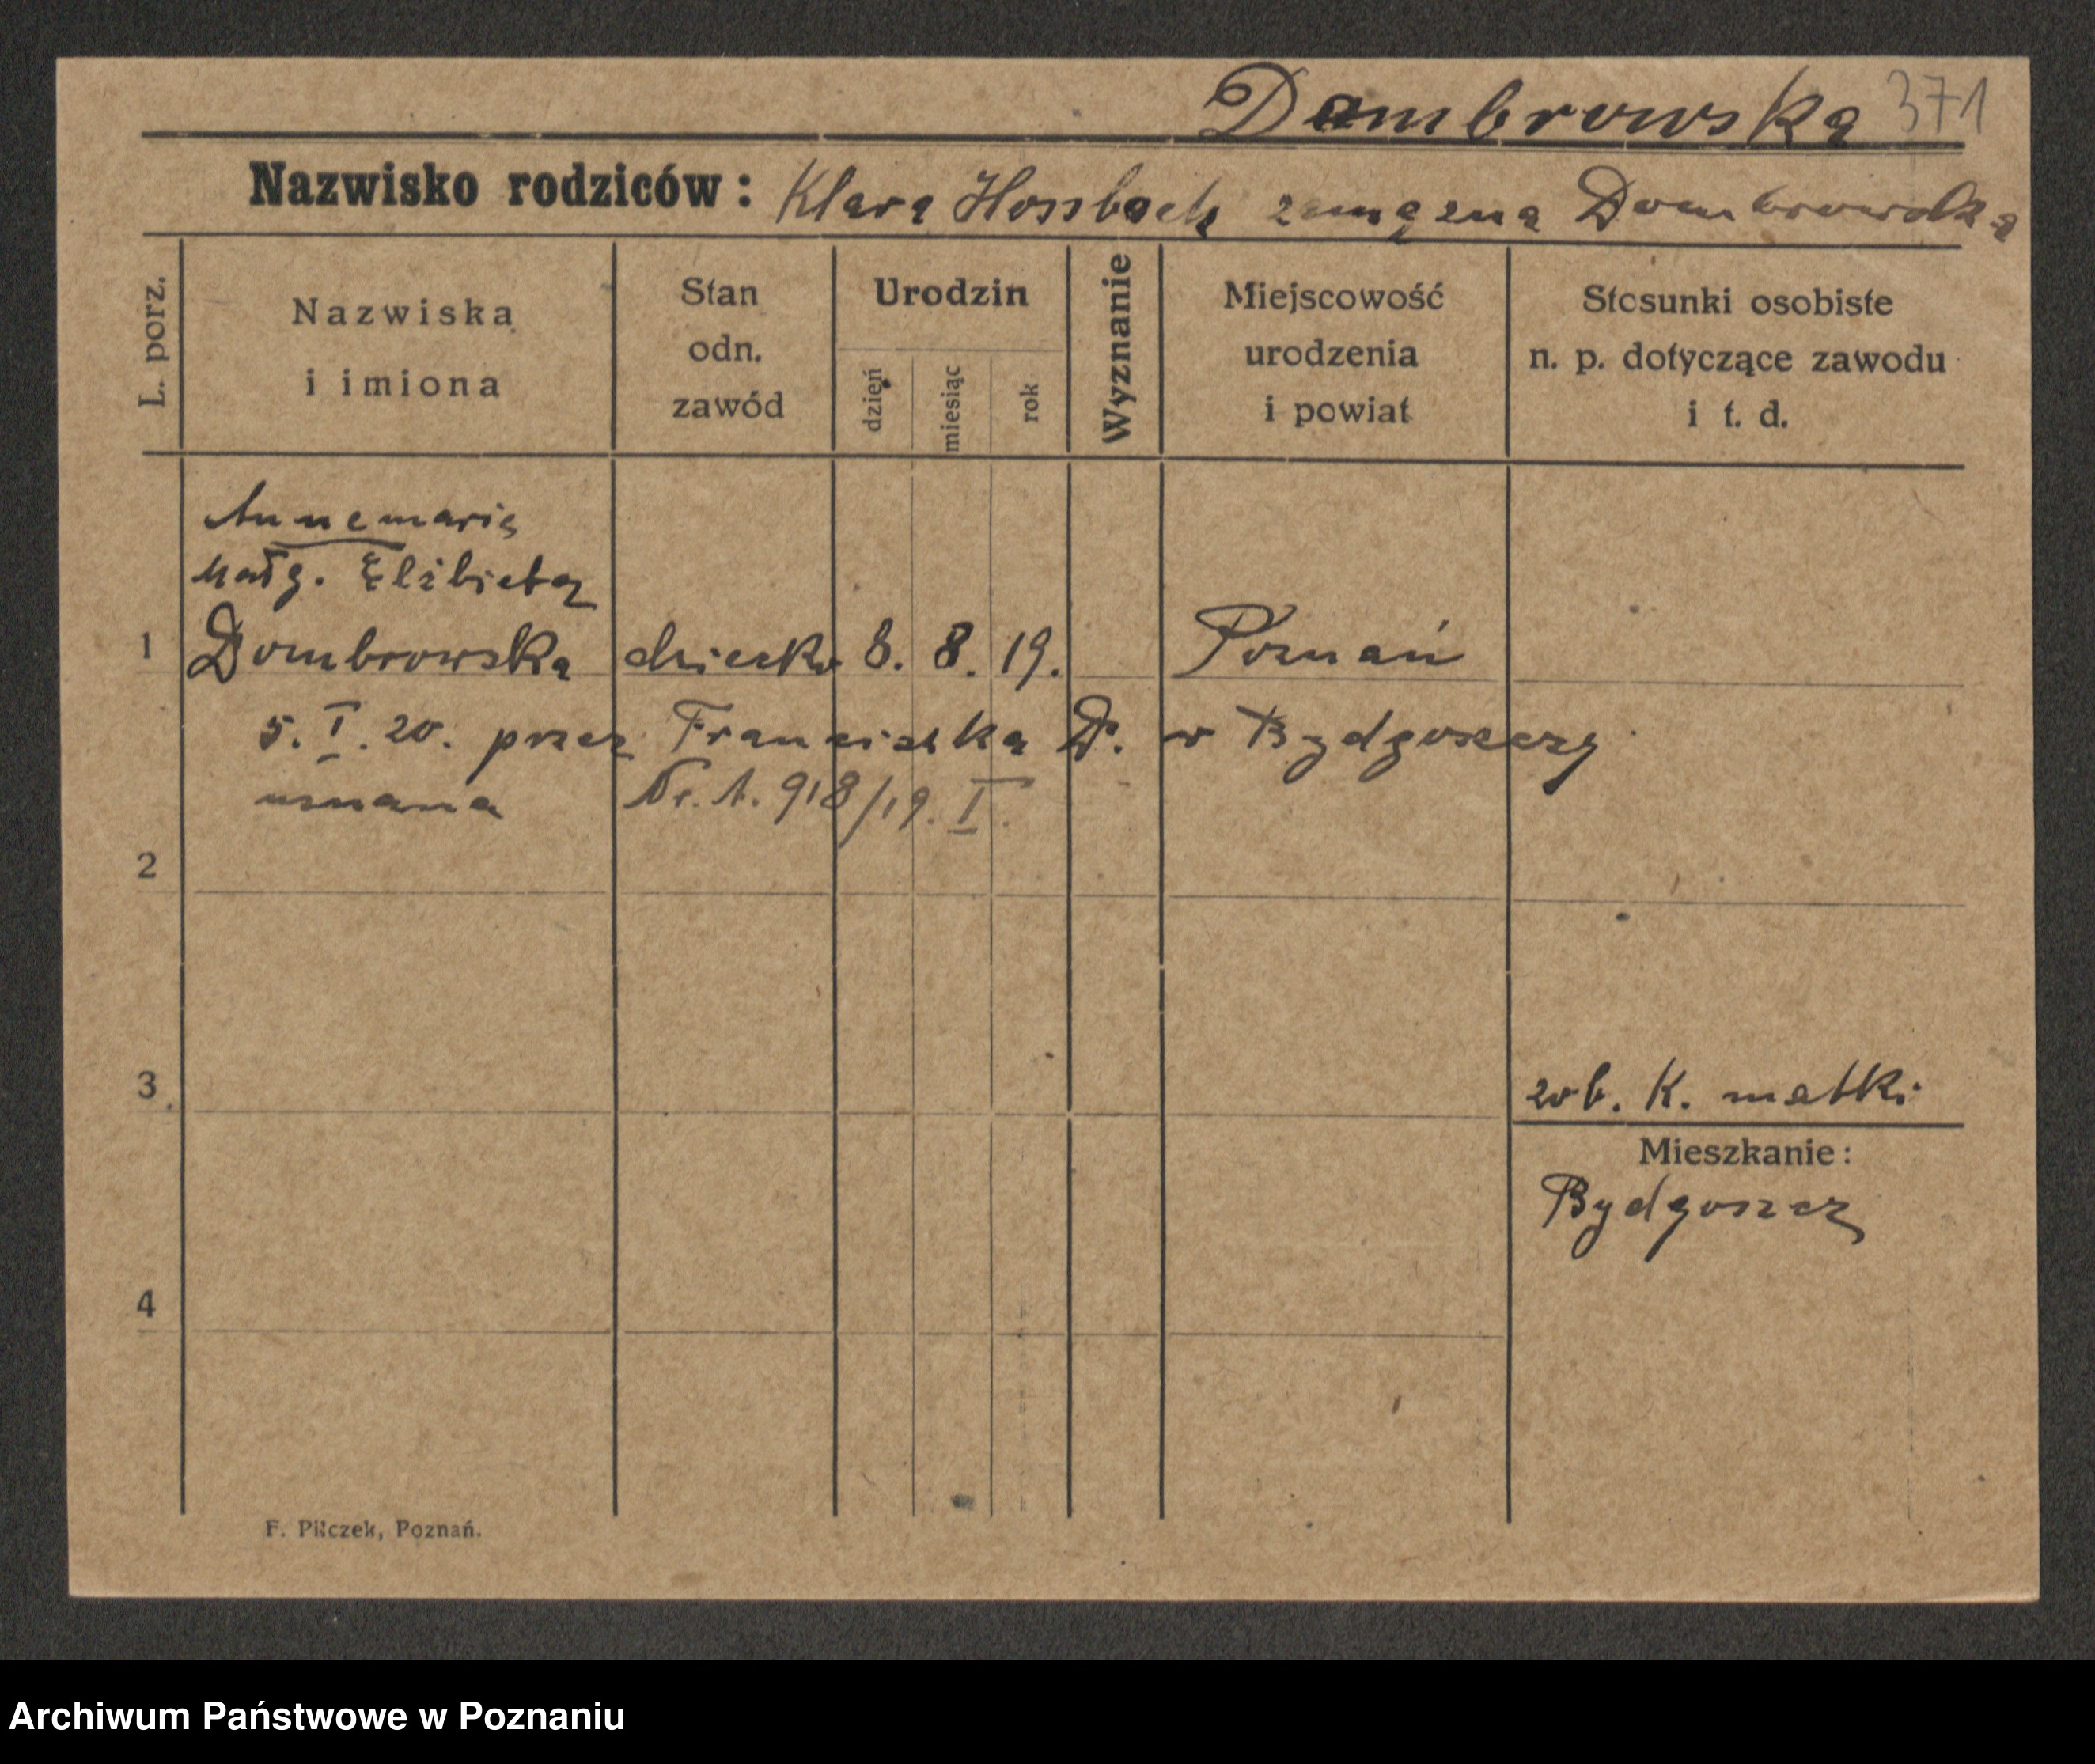 Dombrowska 371
Nazwisko rodziców: Klara Hossbach zamężna Dombrowska
L. porz.
Nazwiska
i imiona
Stan
odn.
zawód
Urodzin
dzień
miesiąc
rok
Wyznanie
Miejscowość
urodzenia
i powiat
Stosunki osobiste
n. p. dotyczące zawodu
i t. d.
Annemarie
Małg. Elżbieta
1 Dombrowska dziecko 8. 8. 19. Poznań
5. I. 20. przez Franciszka D. w Bydgoszczy
uznana Nr. A. 918/19. I.
2
3
zob. K. matki
Mieszkanie:
Bydgoszcz
4
F. Pilczek, Poznań.
Archiwum Państwowe w Poznaniu